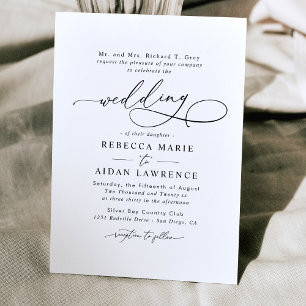 Mr. and Mrs. Richard T. Grey
request the pleasure of your company
to celebrate the
wedding
- of their daughter -
REBECCA MARIE
to
AIDAN LAWRENCE
Saturday, the Fifteenth of August
Two Thousand and Twenty xx
at three thirty in the afternoon
Silver Bay Country Club
1251 Rockville Drive - San Diego, CA
reception to follow